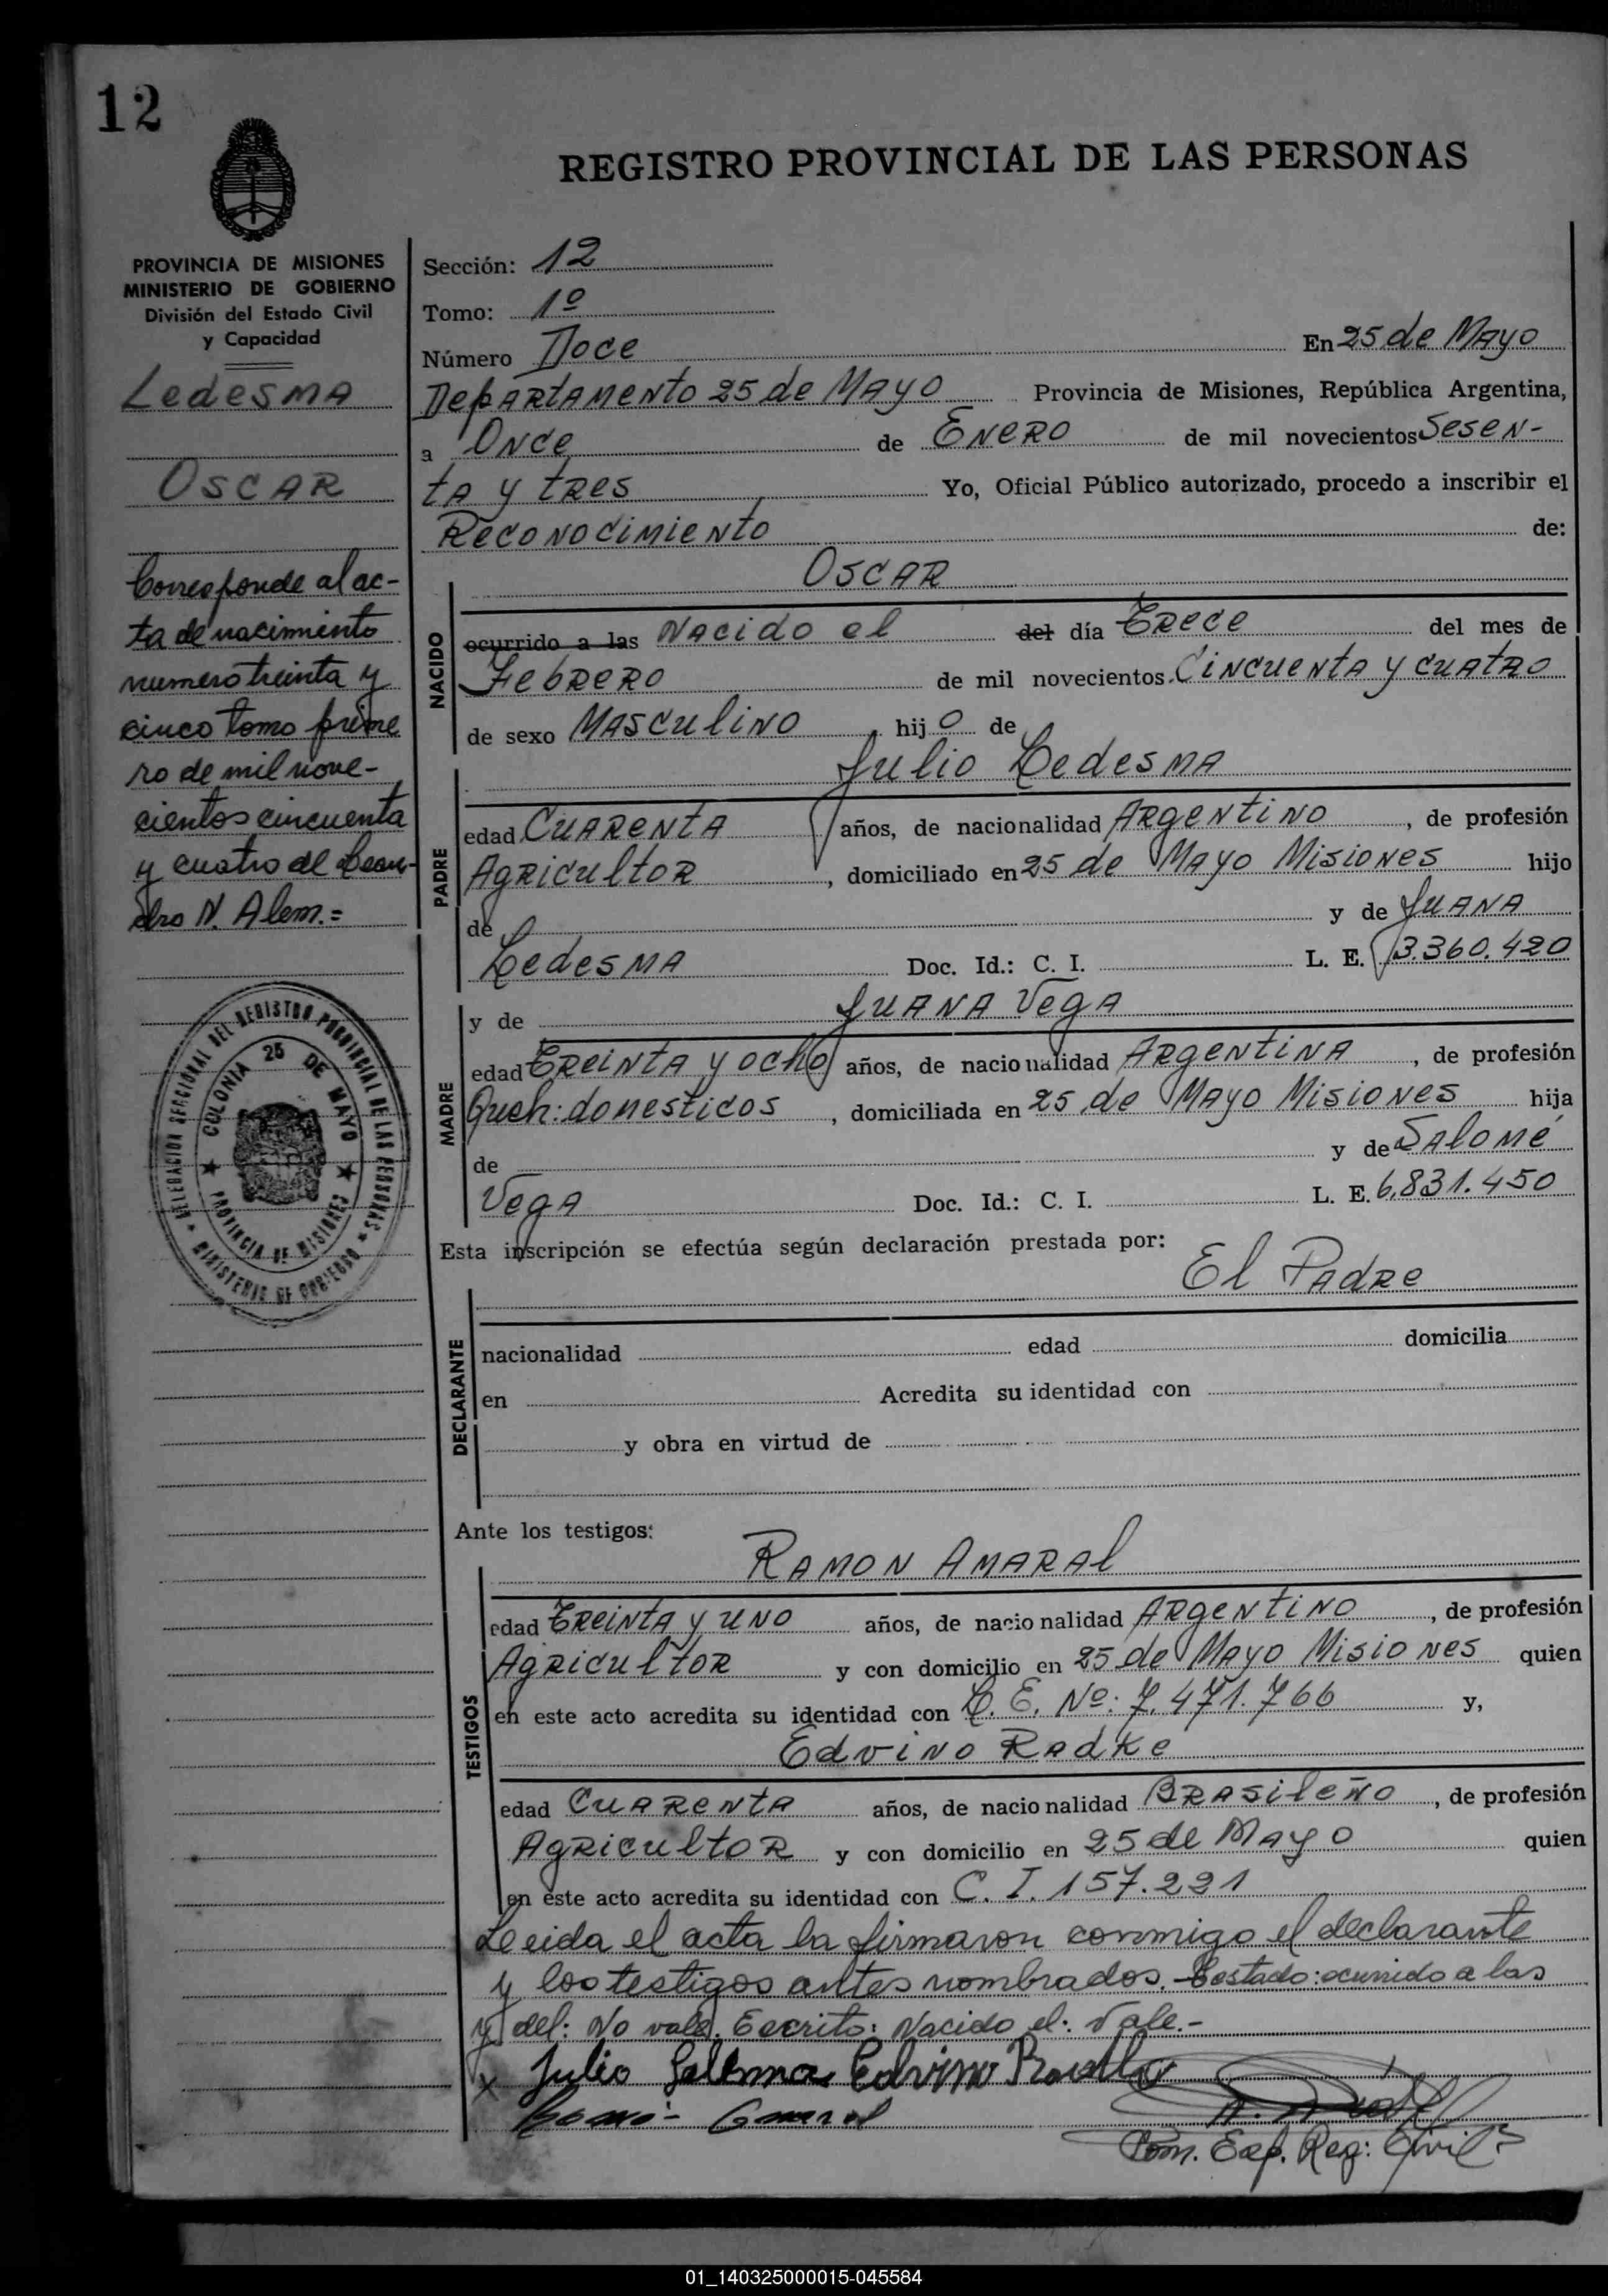 12
REGISTRO PROVINCIAL DE LAS PERSONAS
PROVINCIA DE MISIONES
MINISTERIO DE GOBIERNO
División del Estado Civil
y Capacidad
Ledesma
Oscar
Corresponde al ac-
ta de nacimiento
numero treinta y
cinco tomo prime
ro de mil nove-
cientos cincuenta
y cuatro de Lean-
dro N. Alem.=
DELEGACION SECCIONAL DEL REGISTRO PROVINCIAL DE LAS PERSONAS
COLONIA 25 DE MAYO
PROVINCIA DE MISIONES
MINISTERIO DE GOBIERNO
Sección: 12
Tomo: 1º
Número Doce En 25 de Mayo
Departamento 25 de Mayo Provincia de Misiones, República Argentina,
a Once de Enero de mil novecientos Sesen-
ta y tres Yo, Oficial Público autorizado, procedo a inscribir el
Reconocimiento de:
Oscar
NACIDO
ocurrido a las Nacido el del día Trece del mes de
Febrero de mil novecientos Cincuenta y cuatro
de sexo Masculino hijo de
Julio Ledesma
PADRE
edad Cuarenta años, de nacionalidad Argentino, de profesión
Agricultor, domiciliado en 25 de Mayo Misiones hijo
de y de Juana
Ledesma Doc. Id.: C. I. L. E. 3.360.420
y de Juana Vega
MADRE
edad Treinta y ocho años, de nacionalidad Argentina, de profesión
Queh: domesticos, domiciliada en 25 de Mayo Misiones hija
de y de Salomé
Vega Doc. Id.: C. I. L. E. 6.831.450
Esta inscripción se efectúa según declaración prestada por:
El Padre
DECLARANTE
nacionalidad edad domicilia
en Acredita su identidad con
y obra en virtud de
Ante los testigos:
Ramon Amaral
TESTIGOS
edad Treinta y uno años, de nacionalidad Argentino, de profesión
Agricultor y con domicilio en 25 de Mayo Misiones quien
en este acto acredita su identidad con L. E. Nº: 7.471.766 y,
Edvino Radke
edad Cuarenta años, de nacionalidad Brasileño, de profesión
Agricultor y con domicilio en 25 de Mayo quien
en este acto acredita su identidad con C. I. 157.221
Leeida el acta la firmaron conmigo el declarante
y los testigos antes nombrados. Testado: ocurrido a las
y del: No vale. Escrito: Nacido el: Vale.-
x Julio Edvino
Com. Reg: Civil
01_140325000015-045584